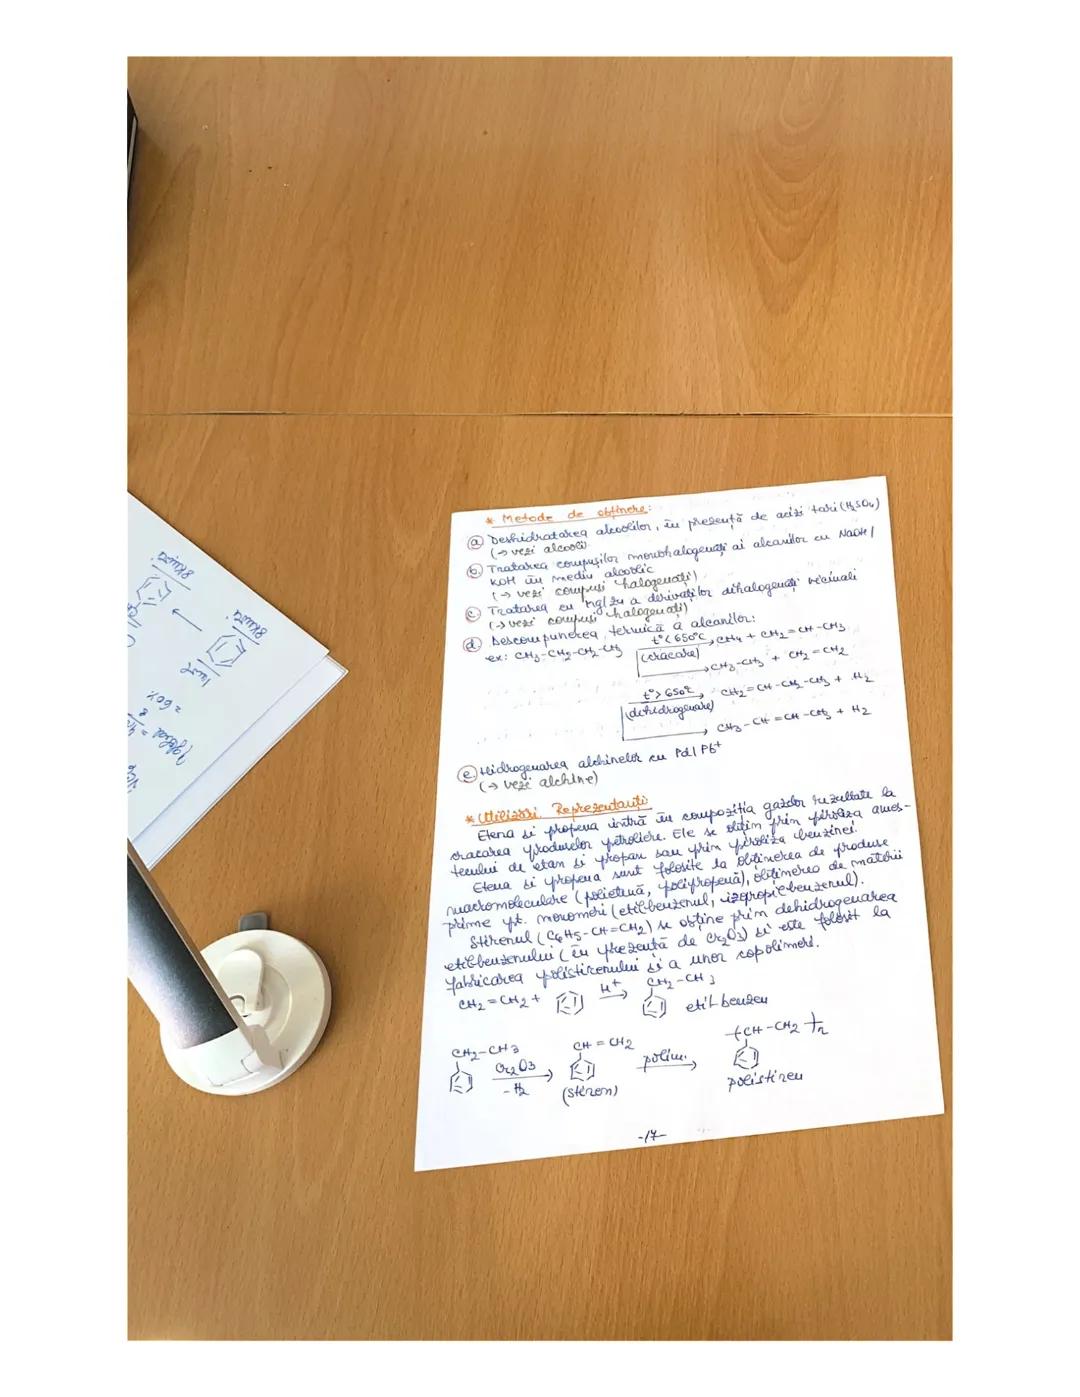 * Metode de obținere:
a. Deshidratarea alcoolilor, în prezență de acizi tari (H2SO4)
(→ vezi alcooli)
b. Tratarea compușilor monohalogenați ai alcanilor cu NaOH/
KOH în mediu alcoolic
(→ vezi compuși halogenați)
c. Tratarea cu Mg/Zn a derivaților dihalogenați vicinali
(→ vezi compuși halogenați)
d. Descompunerea termică a alcanilor:
ex: CH3-CH2-CH2-CH3 t°<650°C (cracare) → CH4 + CH2=CH-CH3
→ CH3-CH3 + CH2=CH2
t°>650°C (dehidrogenare) → CH2=CH-CH2-CH3 + H2
→ CH3-CH=CH-CH3 + H2
e. Hidrogenarea alchinelor cu Pd/Pb+
(→ vezi alchine)
* Utilizări. Reprezentanți
Etena și propena intră în compoziția gazelor rezultate la
cracarea produselor petroliere. Ele se obțin prin piroliza ames-
tecului de etan și propan sau prin piroliza benzinei.
Etena și propena sunt folosite la obținerea de produse
macromoleculare (polietenă, polipropenă), obținerea de materii
prime pt. monomeri (etilbenzenul, izopropilbenzenul).
Stirenul (C6H5-CH=CH2) se obține prin dehidrogenarea
etilbenzenului (în prezență de Cr2O3) și este folosit la
fabricarea polistirenului și a unor copolimeri.
CH2=CH2 + H+ → CH2-CH3
etil-benzen
CH2-CH3 Cr2O3 → -H2 CH=CH2 polim. → (CH-CH2)n
(stiren) polistiren
-17-